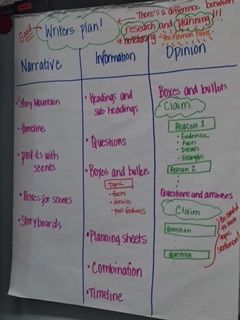 Good Writers plan!
There's a difference between
research and planning!!!
Narrative
Information
Opinion
• Story Mountain
• timeline
• post its with
scenes
• Boxes for scenes
• Story boards
• Headings and
sub-headings
• Questions
• Boxes and bullets
Topic
• facts
• details
• text features
• Planning sheets
• Combination
• Timeline
Boxes and bullets
Claim
Reason 1
• Evidence
• Facts
• Details
• Examples
Reason 2
Questions and answers
Claim
Question
Question
topic
sentences!